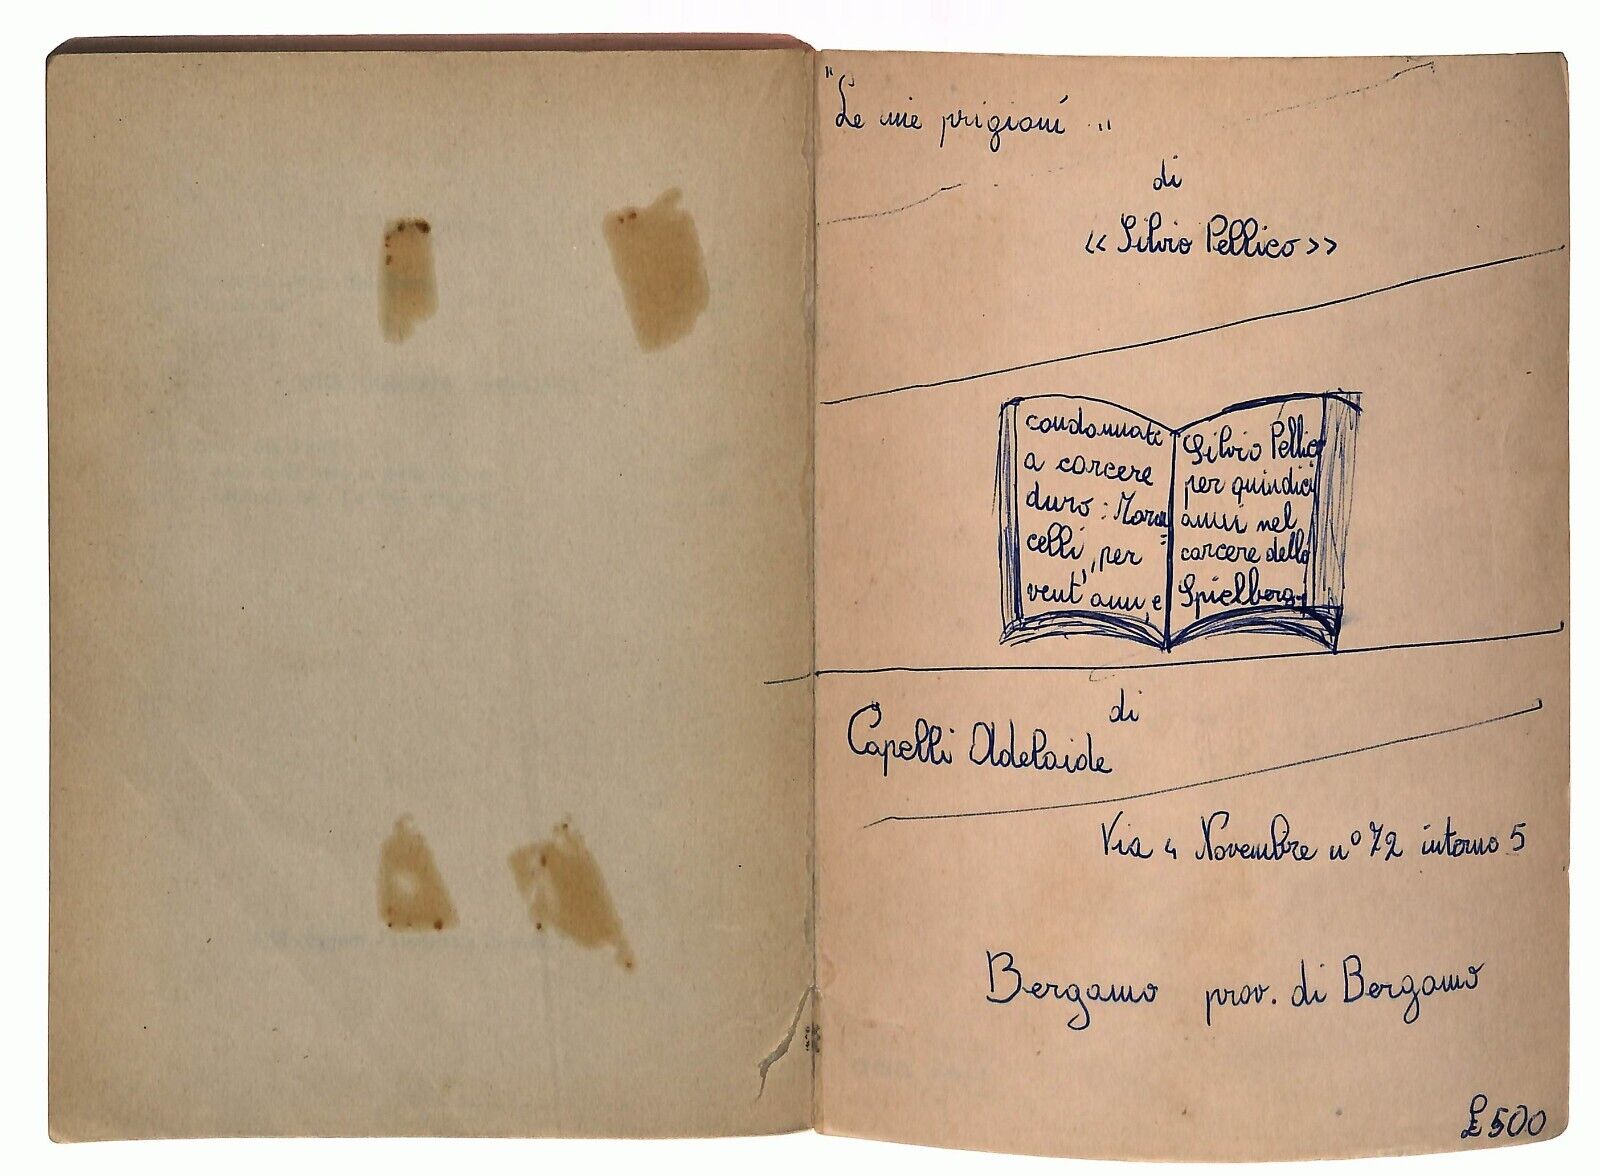 "Le mie prigioni"
di
«Silvio Pellico»
condannati
a carcere
duro: Maron
celli, per
vent'anni, e
Silvio Pellico
per quindici
anni nel
carcere dello
Spielberg
di
Capelli Adelaide
Via 4 Novembre n° 72 interno 5
Bergamo prov. di Bergamo
£500